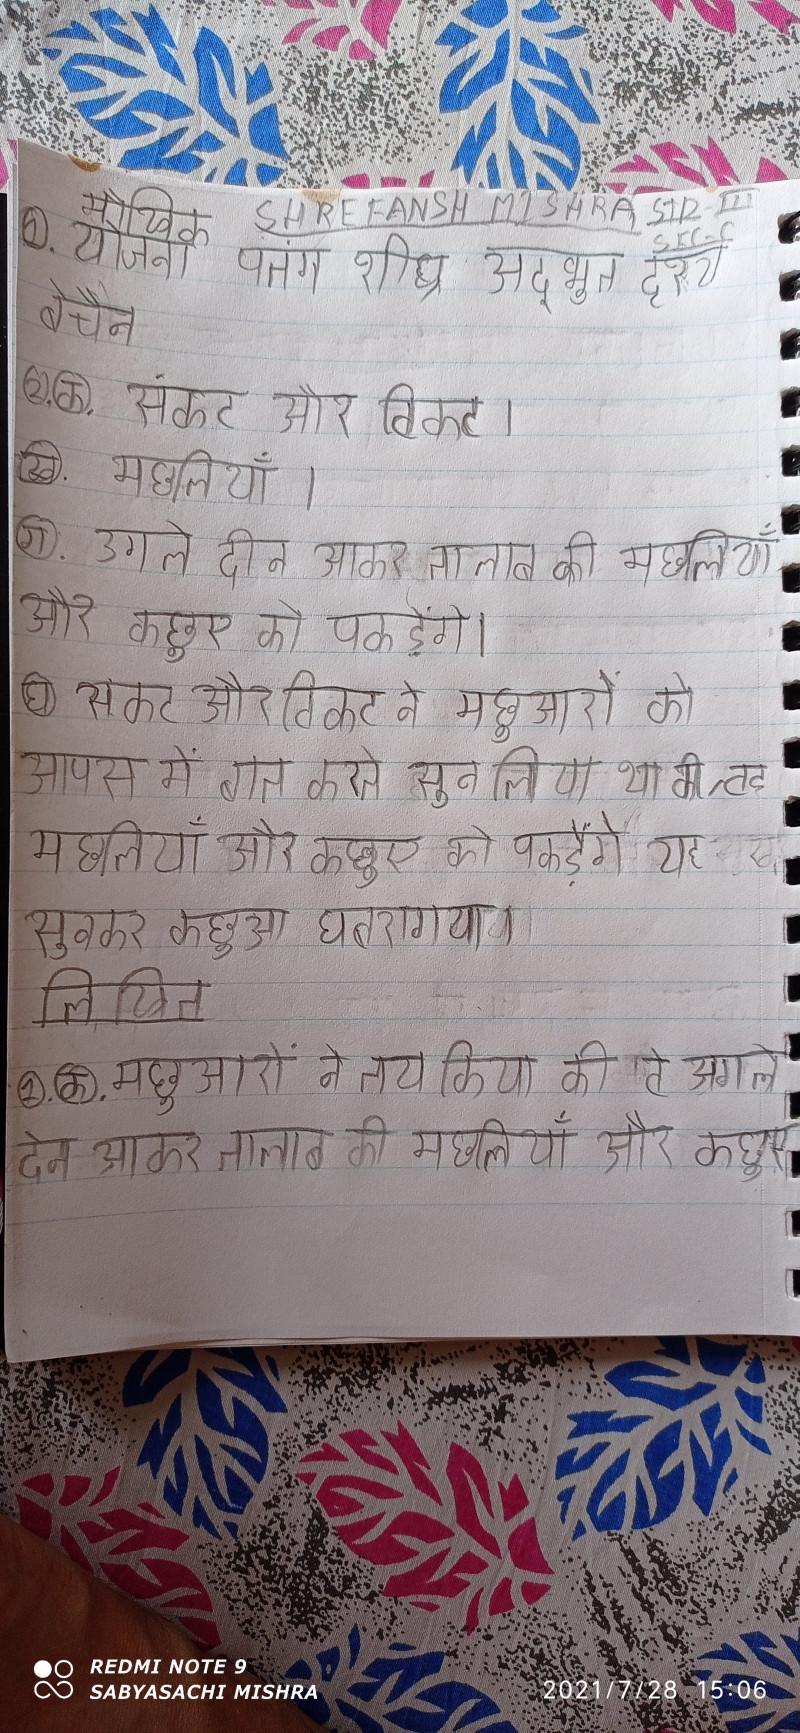 मौखिक SHREEANSH MISHRA STD-III
SEC-C
१. योजना पतंग शीघ्र अद्भुत दृश्य
बेचैन
२.क. संकट और विकट।
ख. मछलियाँ।
ग. उगले दीन आकर तालाब की मछलियाँ
और कछुए को पकड़ेंगे।
घ सकट और विकट ने मछुआरों को
आपस में बात करते सुन लिया था की वह
मछलियाँ और कछुए को पकड़ेंगे यह
सुनकर कछुआ घबरा गया।
लिखित
१.क. मछुआरों ने तय किया की वे अगले
देन आकर तालाब की मछलियाँ और कछुए
REDMI NOTE 9
SABYASACHI MISHRA
2021/7/28 15:06